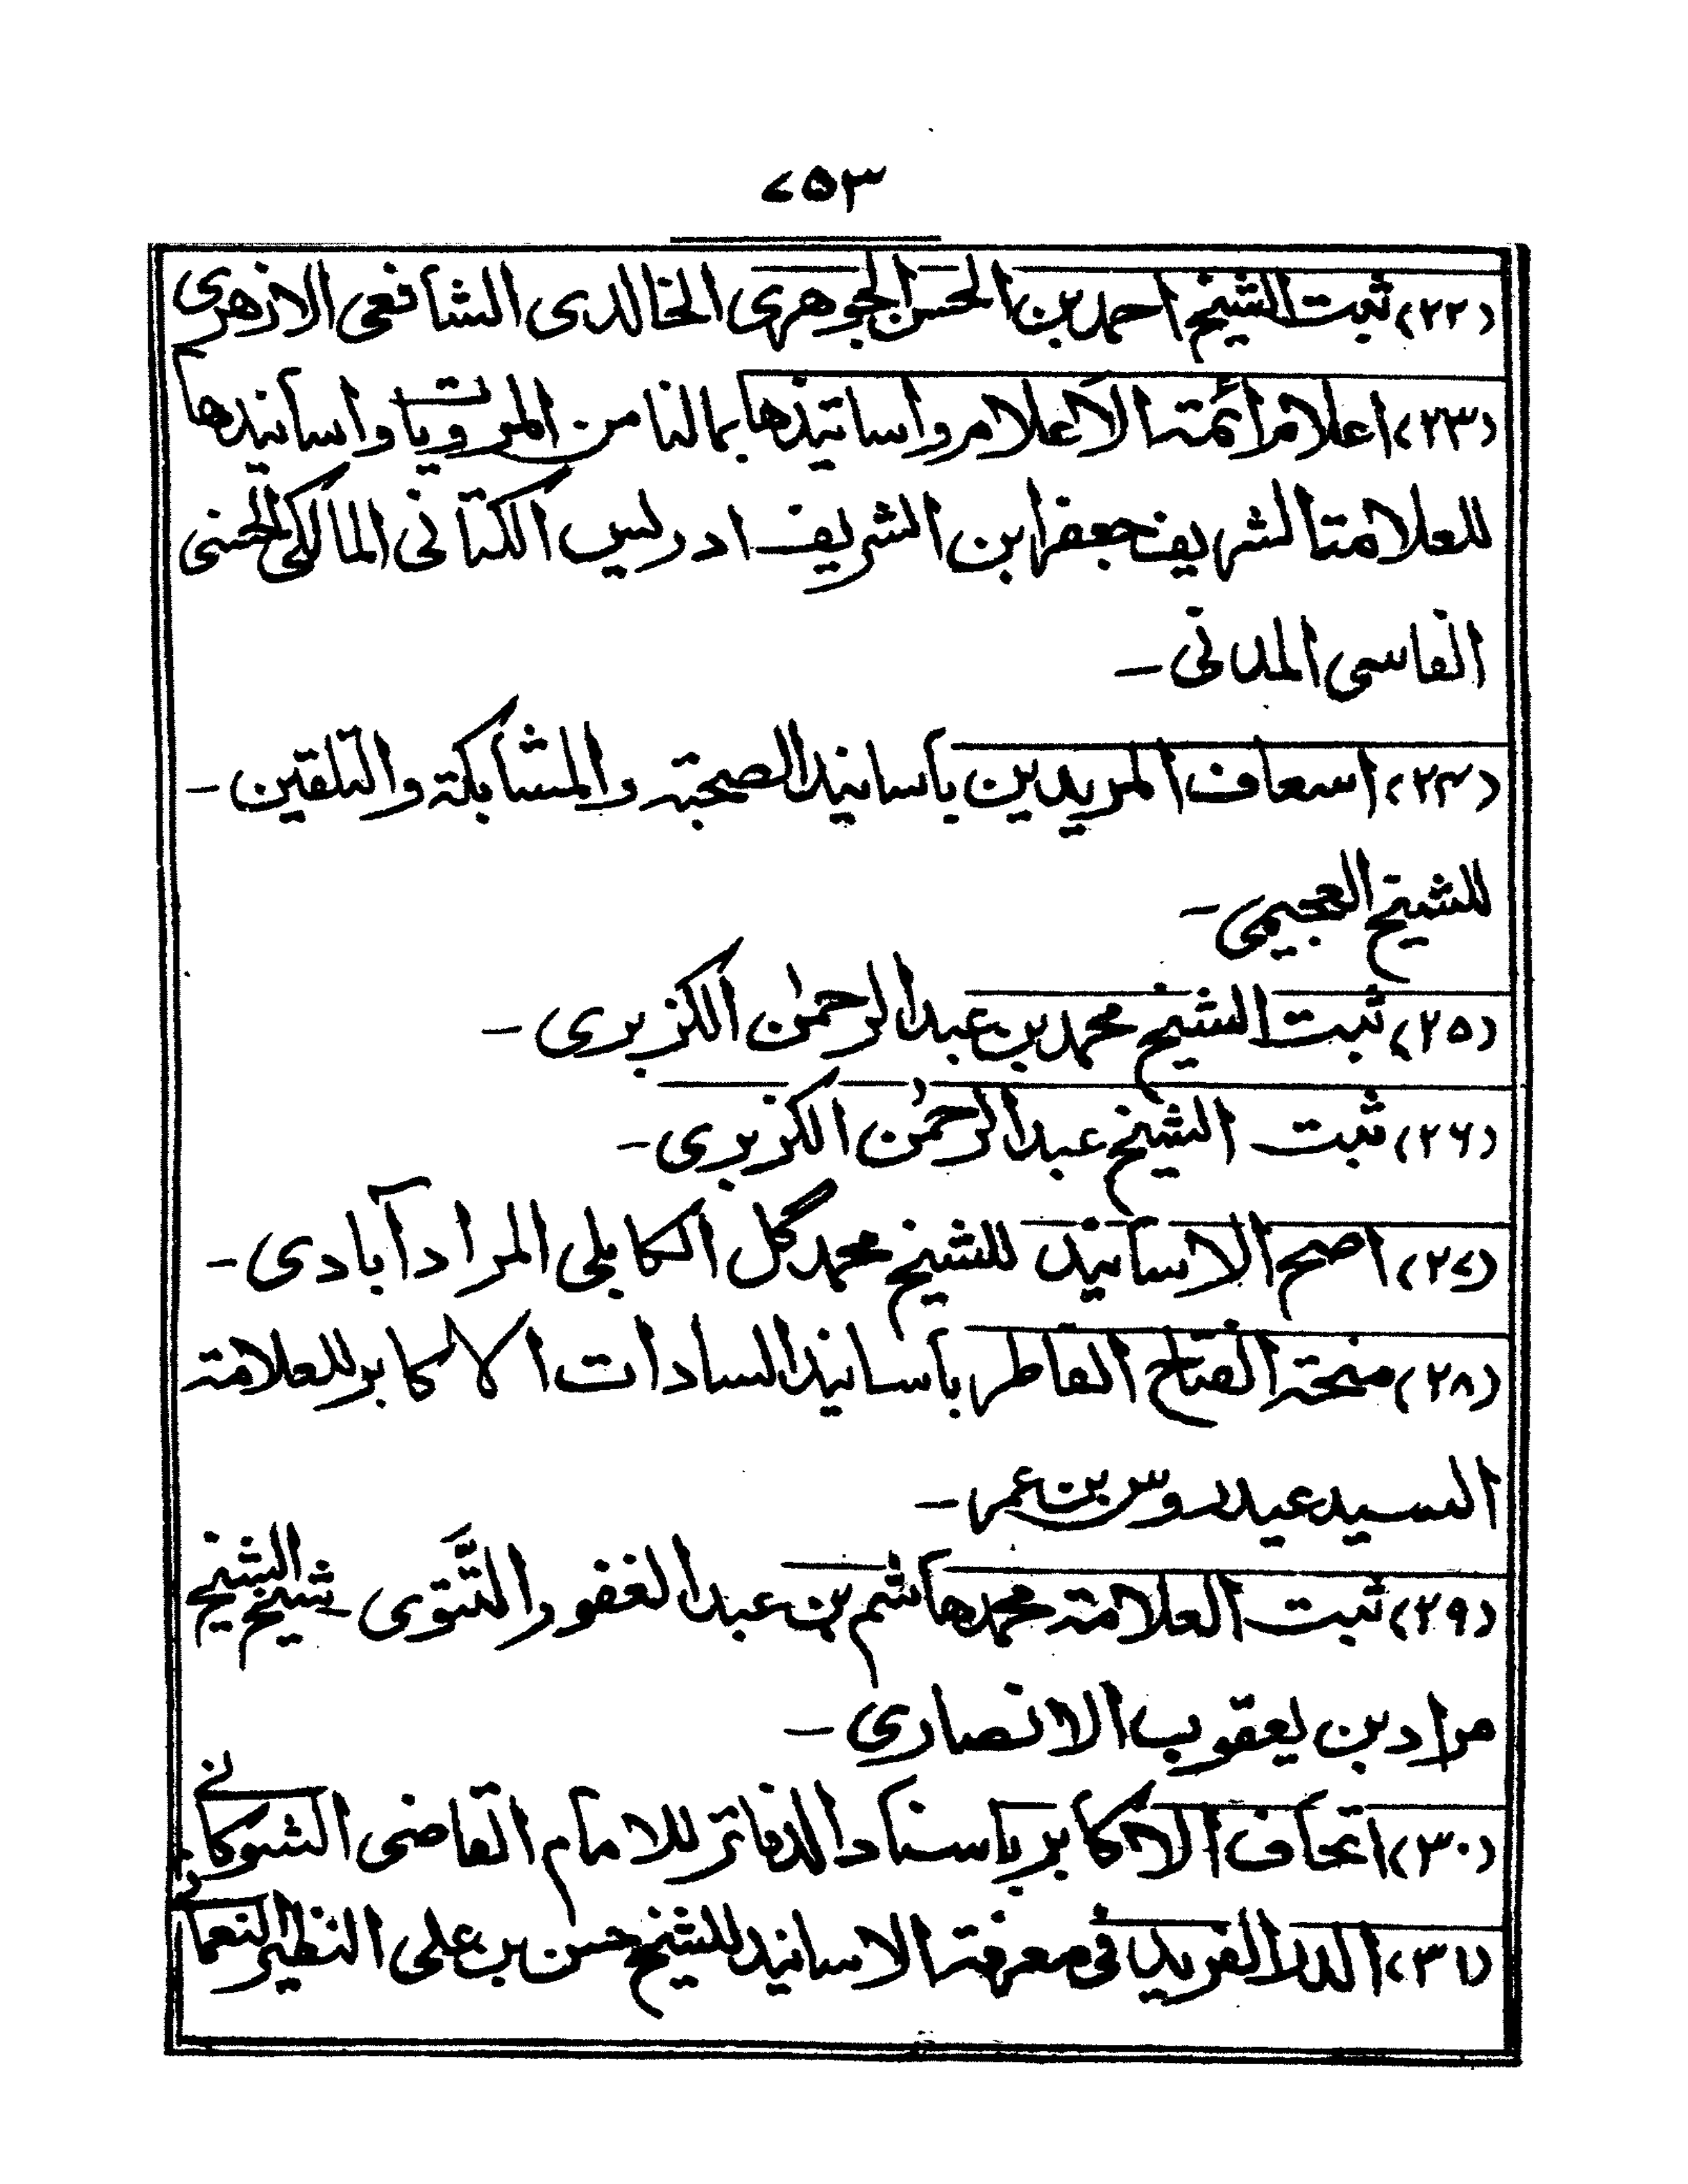 ۷۵۳
(۲۲) ثبت الشيخ احمد بن الحسن الجوهری الخالدی الشافعی الازهری
(۲۳) اعلام ائمة الاعلام واساتیذها بمالنا من المرویات واسانیدها
للعلامة الشریف جعفر ابن الشریف ادریس الکتانی المالکی الحسنی
الفاسی المدنی ۔
(۲۴) اسعاف المریدین باسانید الصحبة والمشابکة والتلقین ۔
للشیخ العجیمی ۔
(۲۵) ثبت الشیخ محمد بن عبد الرحمٰن الکزبری ۔
(۲۶) ثبت الشیخ عبد الرحمٰن الکزبری ۔
(۲۷) اصح الاسانید للشیخ محمد گل الکابلی المرادآبادی ۔
(۲۸) منحة الفتاح الفاطر باسانید السادات الاکابر للعلامة
السید عیدروس بن عمر ۔
(۲۹) ثبت العلامة محمد هاشم بن عبد الغفور التَّتَوی شیخ الشیخ
مراد بن یعقوب الانصاری ۔
(۳۰) اتحاف الاکابر باسناد الدفاتر للامام القاضی الشوکانی
(۳۱) الدر الفرید فی معرفة الاسانید للشیخ حسن بن علی النظیر النعمانی